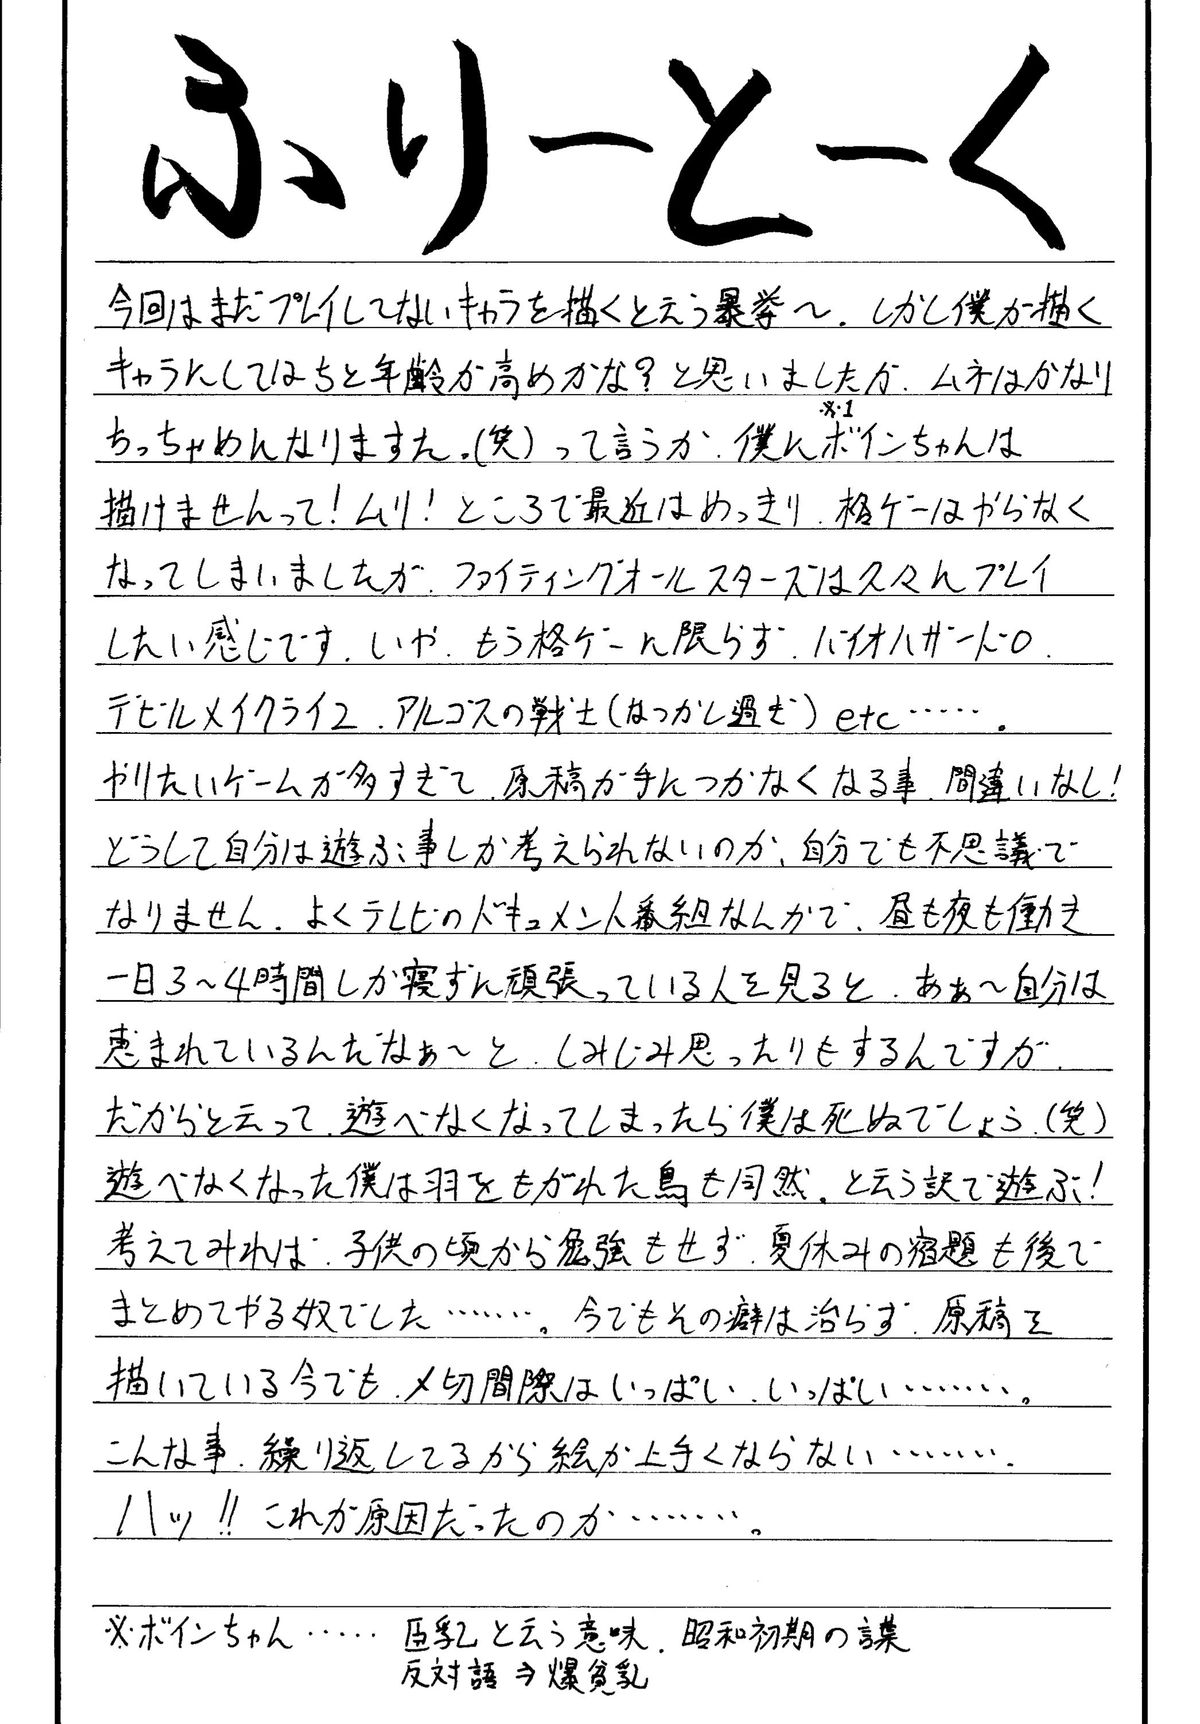 ふりーとーく
今回はまだプレイしてないキャラを描くと云う暴挙〜、しかし僕が描く
キャラにしてはちと年齢が高めかな?と思いましたが、ムネはかなり
ちっちゃめんなりますた。(笑)って言うか、僕にボインちゃんは
※1
描けませんって!ムリ!ところで最近はめっきり、格ゲーはやらなく
なってしまいましたが、ファイティングオールスターズは久々にプレイ
したい感じです。いや、もう格ゲーに限らず、バイオハザード0、
デビルメイクライ2、アルゴスの戦士(なつかし過ぎ)etc……。
やりたいゲームが多すぎて、原稿が手につかなくなる事、間違いなし!
どうして自分は遊ぶ事しか考えられないのか、自分でも不思議で
なりません。よくテレビのドキュメント番組なんかで、昼も夜も働き
一日3〜4時間しか寝ずに頑張っている人を見ると、あぁ〜自分は
恵まれているんだなぁ〜と、しみじみ思ったりもするんですが、
だからと云って、遊べなくなってしまったら僕は死ぬでしょう、(笑)
遊べなくなった僕は羽をもがれた鳥も同然。と云う訳で遊ぶ!
考えてみれば、子供の頃から勉強もせず、夏休みの宿題も後で
まとめてやる奴でした………。今でもその癖は治らず、原稿を
描いている今でも、〆切間際はいっぱい、いっぱい………。
こんな事、繰り返してるから絵が上手くならない………。
ハッ!!これが原因だったのか………。
※ボインちゃん…… 巨乳と云う意味、昭和初期の言葉
反対語⇒爆貧乳